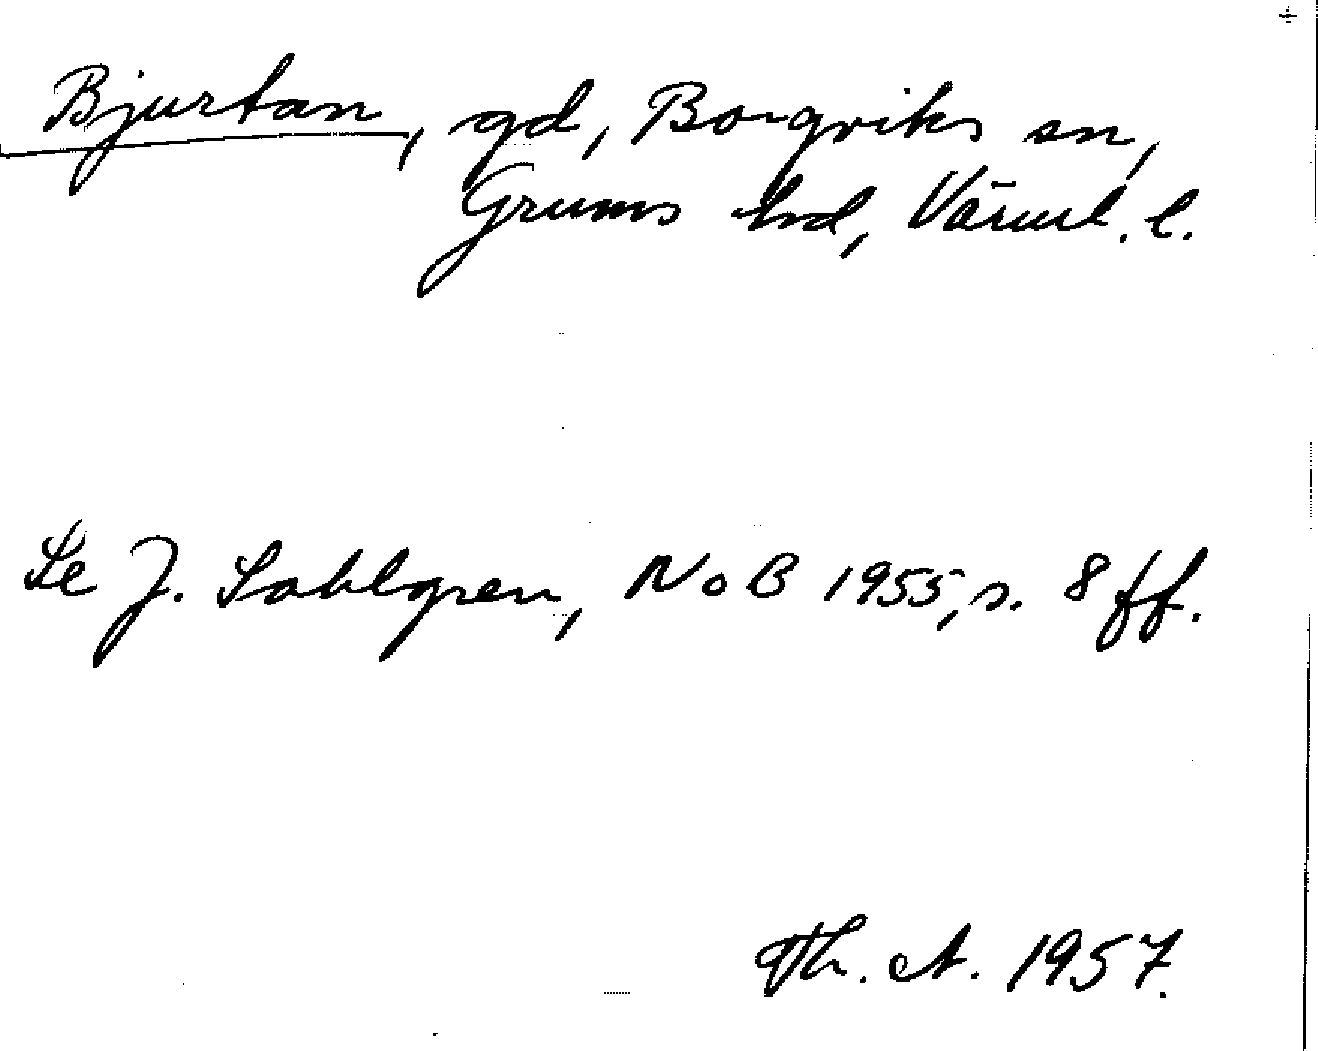 Bjurtan, gd, Borgviks sn,
Grums hd, Värml. l.
Se J. Sahlgren, NoB 1955, s. 8 ff.
Th. A. 1957.